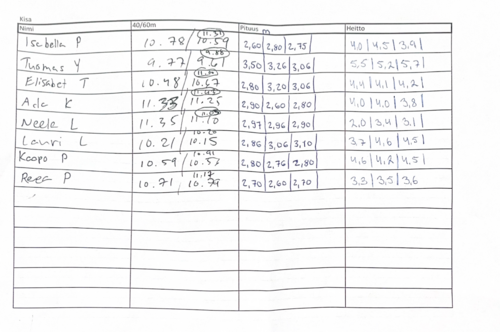 Kisa
Nimi 40/60m Pituus m Heitto
Isabella P 10.78 / 10.59 2,60 | 2,80 | 2,75 4,0 | 4,5 | 3,9 |
Tuomas Y 9.77 / 9.61 3,50 | 3,26 | 3,06 5,5 | 5,2 | 5,7 |
Elisabet T 10.48 / 10.67 2,80 | 3,20 | 3,06 4,4 | 4,1 | 4,2 |
Ada K 11.33 / 11.25 2,90 | 2,60 | 2,80 4,0 | 4,0 | 3,8 |
Neela L 11.35 / 11.10 2,97 | 2,96 | 2,90 2,0 | 3,4 | 3,1 |
Lauri L 10.21 / 10.15 2,86 | 3,06 | 3,10 3,7 | 4,6 | 4,5 |
Kaapo P 10.59 / 2,80 | 2,76 | 2,80 4,6 | 4,2 | 4,5 |
P 10.71 / 10.79 2,70 | 2,60 | 2,70 3,3 | 3,5 | 3,6